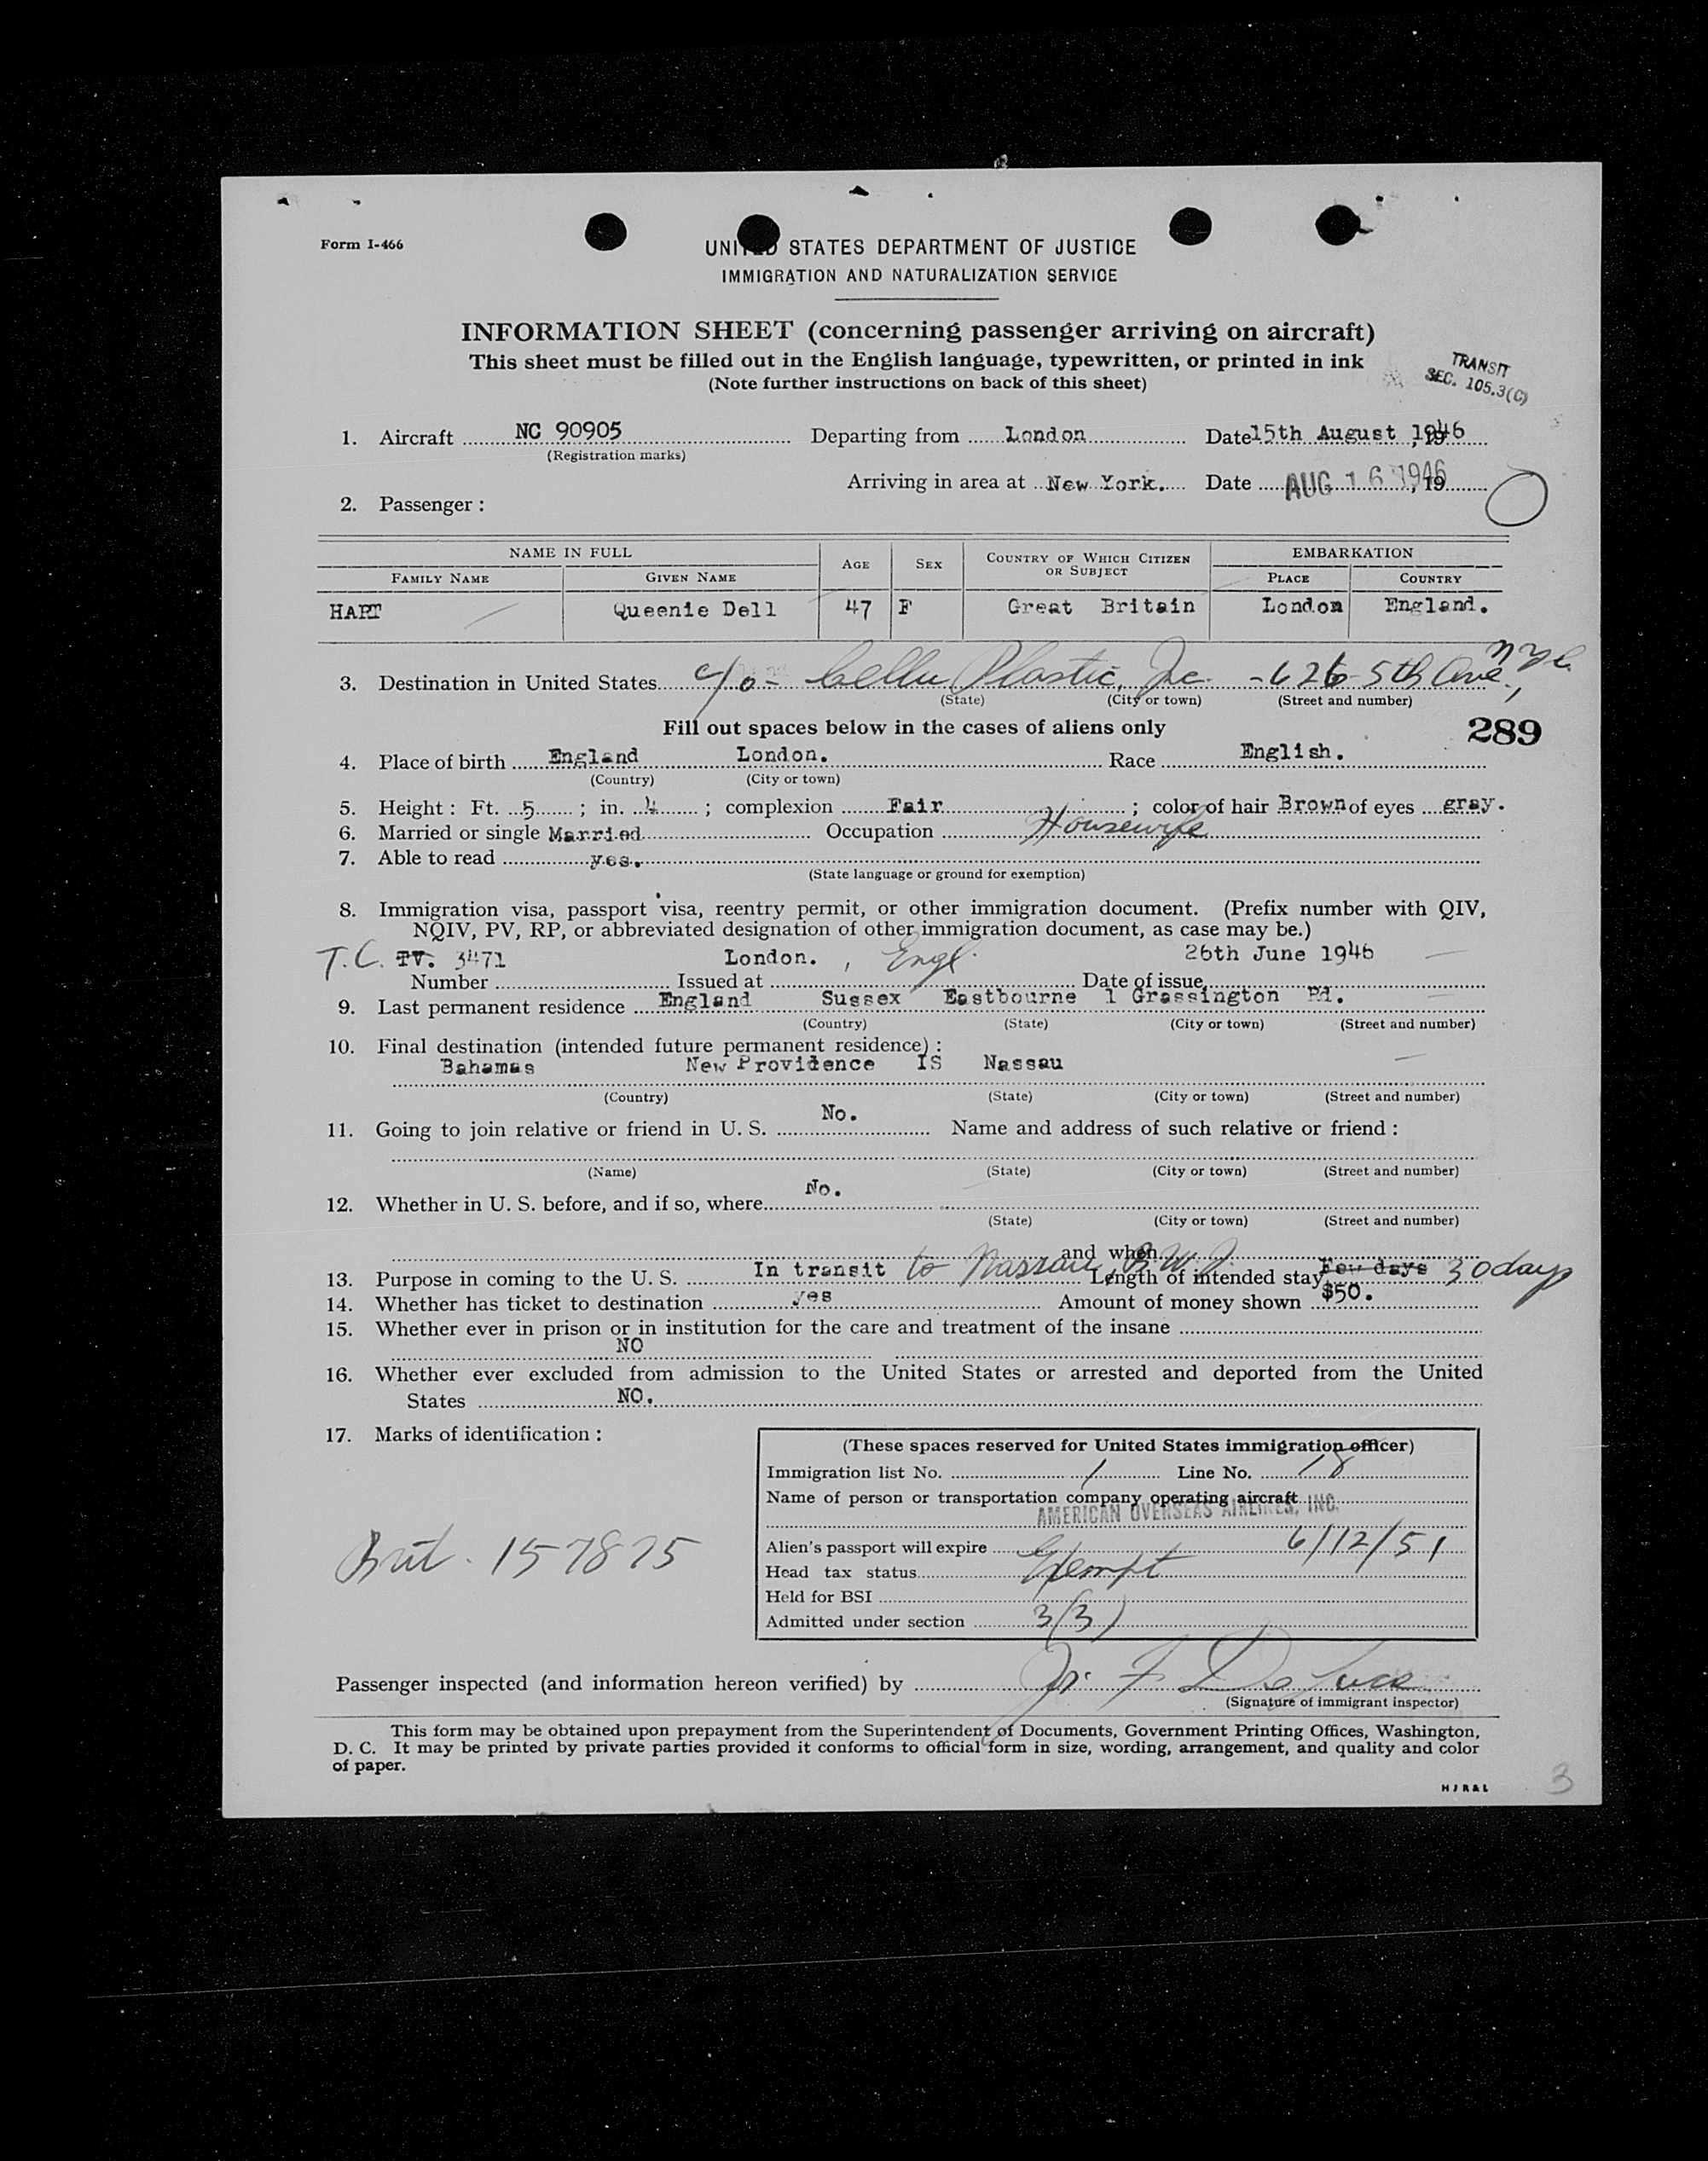 Form I-466
UNITED STATES DEPARTMENT OF JUSTICE
IMMIGRATION AND NATURALIZATION SERVICE
INFORMATION SHEET (concerning passenger arriving on aircraft)
This sheet must be filled out in the English language, typewritten, or printed in ink
(Note further instructions on back of this sheet)
TRANSIT
SEC. 105.3(C)
1. Aircraft NC 90905 Departing from London Date 15th August 1946
(Registration marks)
Arriving in area at New York. Date AUG 16 1946, 19
2. Passenger :
NAME IN FULL AGE SEX COUNTRY OF WHICH CITIZEN OR SUBJECT EMBARKATION
FAMILY NAME GIVEN NAME PLACE COUNTRY
HART Queenie Dell 47 F Great Britain London England.
3. Destination in United States c/o - Cellu Plastic, Inc. - 626 - 5th Ave., N.Y.C.
(State) (City or town) (Street and number)
Fill out spaces below in the cases of aliens only
289
4. Place of birth England London. Race English.
(Country) (City or town)
5. Height : Ft. 5 ; in. 4 ; complexion Fair ; color of hair Brown of eyes gray.
6. Married or single Married Occupation Housewife
7. Able to read yes.
(State language or ground for exemption)
8. Immigration visa, passport visa, reentry permit, or other immigration document. (Prefix number with QIV,
NQIV, PV, RP, or abbreviated designation of other immigration document, as case may be.)
T.C. TV. 3471 London. , Engl. 26th June 1946
Number Issued at Date of issue
9. Last permanent residence England Sussex Eastbourne 1 Grassington Rd.
(Country) (State) (City or town) (Street and number)
10. Final destination (intended future permanent residence) :
Bahamas New Providence IS Nassau
(Country) (State) (City or town) (Street and number)
11. Going to join relative or friend in U. S. No. Name and address of such relative or friend :
(Name) (State) (City or town) (Street and number)
12. Whether in U. S. before, and if so, where No.
(State) (City or town) (Street and number)
and when
13. Purpose in coming to the U. S. In transit to Nassau, B.W.I. Length of intended stay Few days 30 days
14. Whether has ticket to destination yes Amount of money shown $50.
15. Whether ever in prison or in institution for the care and treatment of the insane
NO
16. Whether ever excluded from admission to the United States or arrested and deported from the United
States NO.
17. Marks of identification :
(These spaces reserved for United States immigration officer)
Immigration list No. 1 Line No. 18
Name of person or transportation company operating aircraft
AMERICAN OVERSEAS AIRLINES, INC.
Alien's passport will expire 6/12/51
Head tax status Exempt
Held for BSI
Admitted under section 3(3)
Brit. 157875
Passenger inspected (and information hereon verified) by
(Signature of immigrant inspector)
This form may be obtained upon prepayment from the Superintendent of Documents, Government Printing Offices, Washington,
D. C. It may be printed by private parties provided it conforms to official form in size, wording, arrangement, and quality and color
of paper.
HJR&L
3